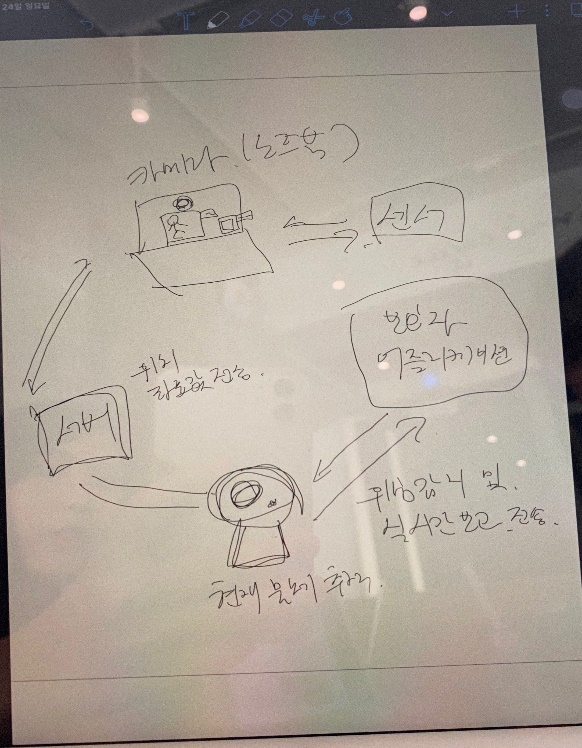 24일 일요일
카메라 (노트북)
센서
보호자
어플리케이션
위치
좌표값 전송.
서버
위험감지 및
실시간 보고 전송.
현재 물체 추적.